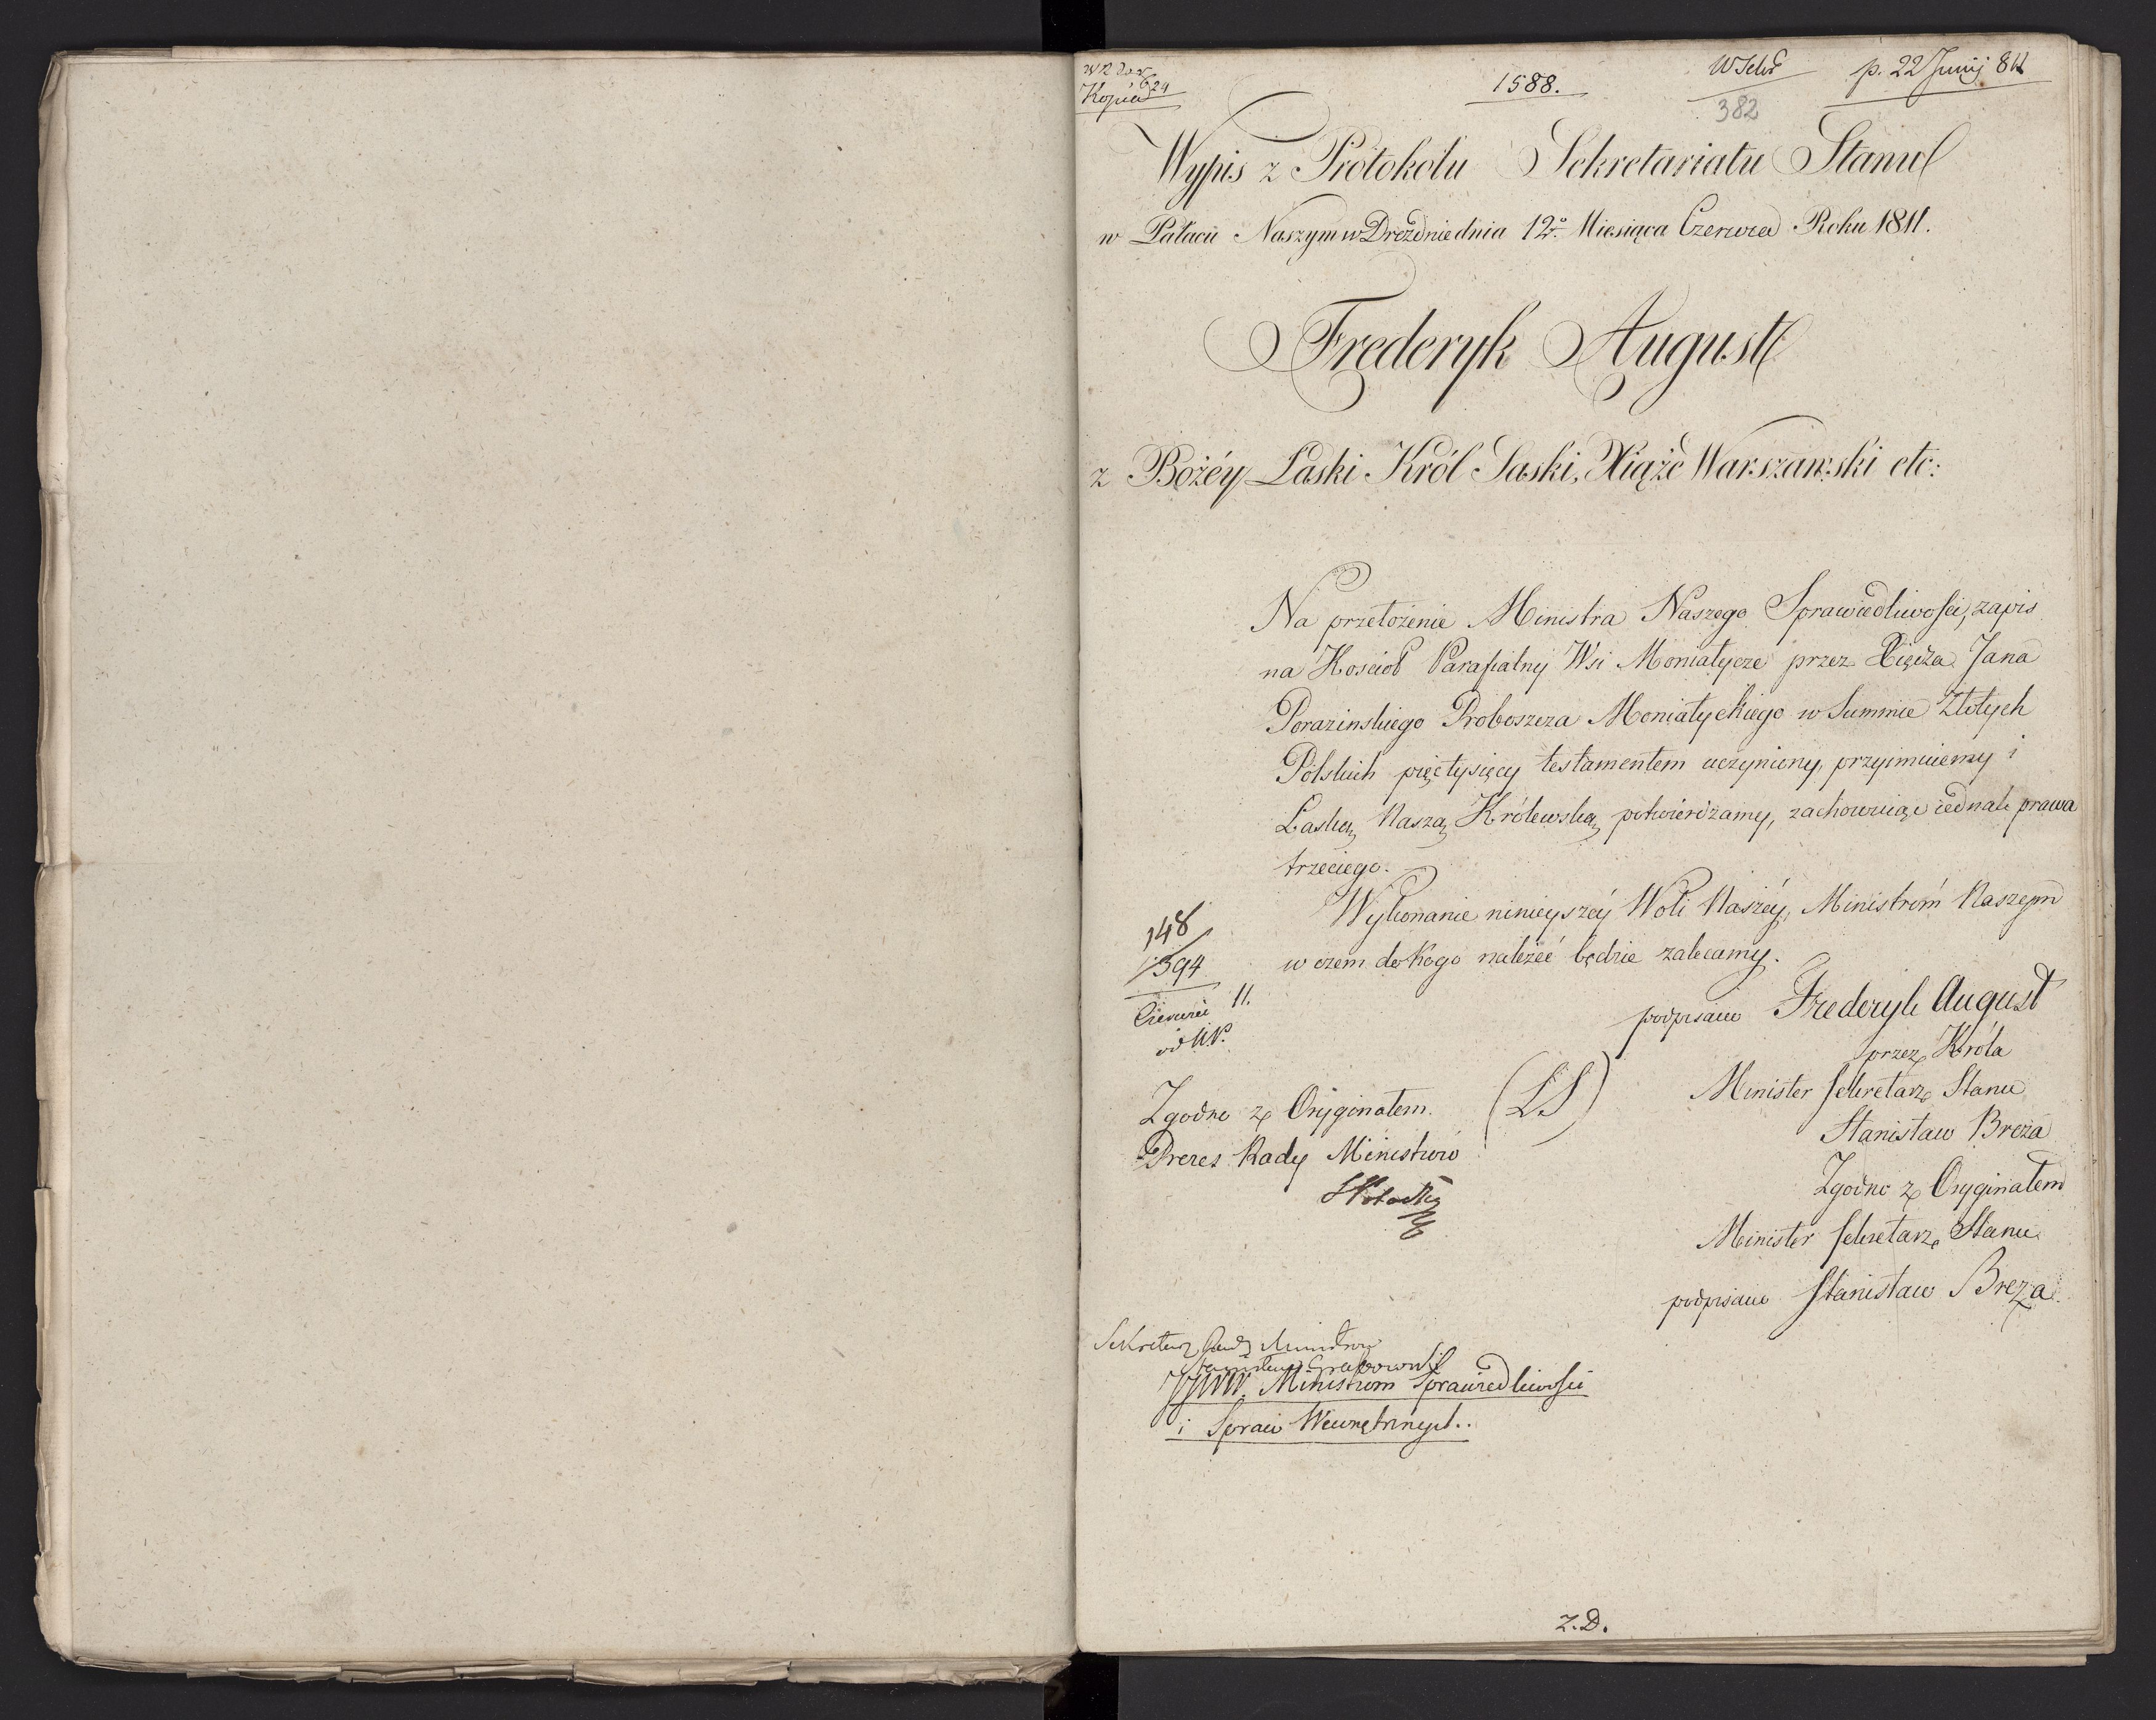 Kopia 624
1588.
382
p. 22 Junij 811
Wypis z Protokółu Sekretariatu Stanu
w Pałacu Naszym w Dreźdnie dnia 12º Miesiąca Czerwca Roku 1811.
Frederyk August
z Bożéy Łaski Król Saski, Xiąże Warszawski etc:
Na przełożenie Ministra Naszego Sprawiedliwości, zapis
na Kościoł Parafialny Wsi Moniatycze przez Xiędza Jana
Porazinskiego Proboszcza Moniatyckiego w Summie Złotych
Polskich pięć tysięcy testamentem uczyniony, przyimuiemy i
Łaską Naszą Królewską potwierdzamy, zachowuiąc iednak prawa
trzeciego.
Wykonanie ninieyszéy Woli Naszéy, Ministróm Naszym
w czem do kogo należéć będzie zalecamy.
148
394
Czerwca 11.
podpisano Frederyk August
przez Króla
Minister Sekretarz Stanu
Stanisław Breza
Zgodno z Oryginałem
Minister Sekretarz Stanu
podpisano Stanisław Breza
(LS)
Zgodno z Oryginałem.
Prezes Rady Ministrów
Sekretarz Rady Ministrów
Stanisław Grabowski
JJWW. Ministrom Sprawiedliwości
i Spraw Wewnętrznych..
Z.D.